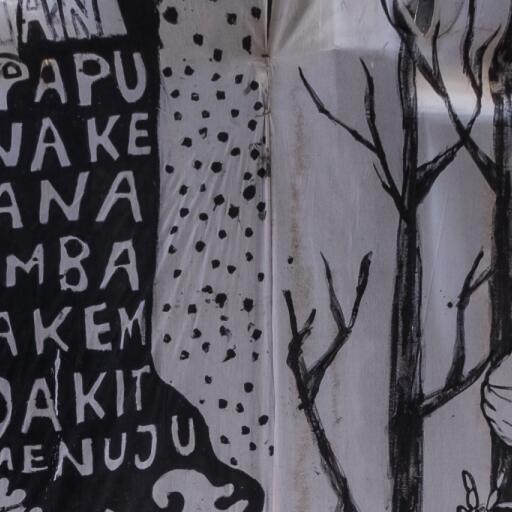 AN
PAPU
NAKE
ANA
MBA
AKEM
DAKIT
MENUJU